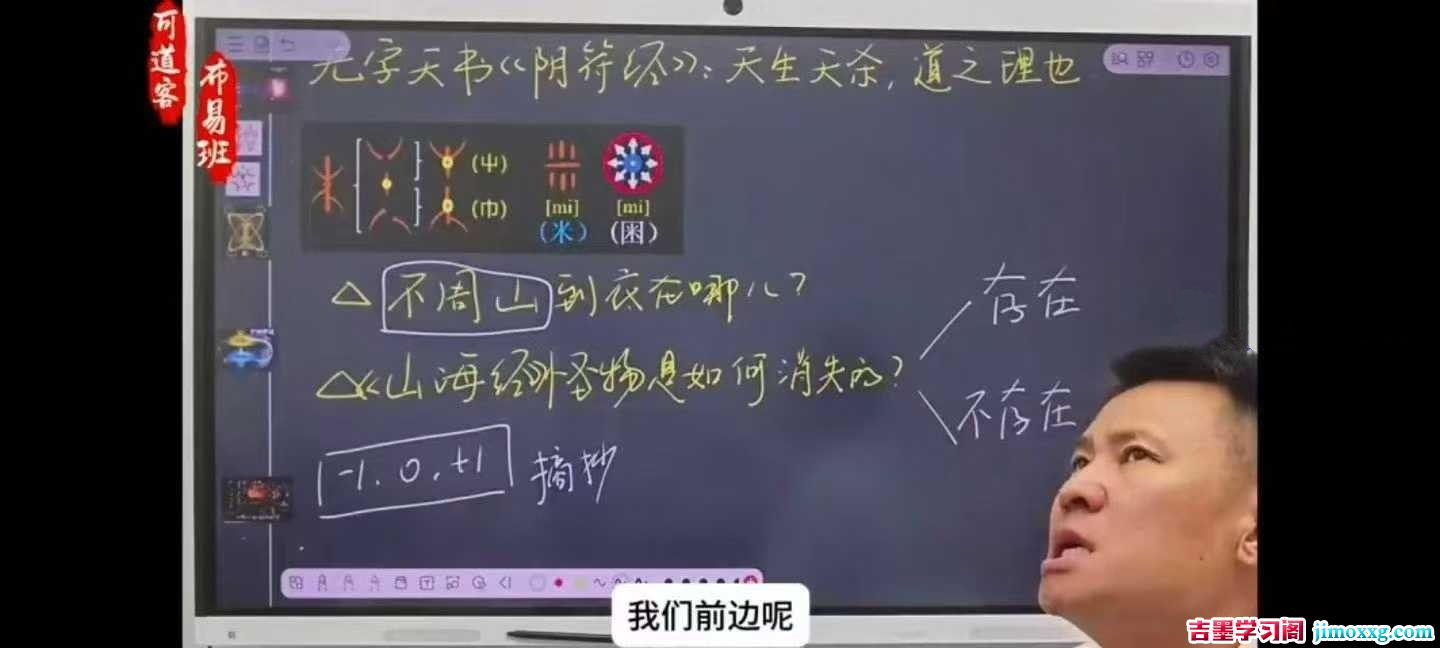 可道客
布易班
无字天书《阴符经》：天生天杀，道之理也
(屮)
(巾)
[mi]
[mi]
(米)
(囷)
△ 不周山到底在哪儿？
△《山海经》怪物是如何消失的？
存在
不存在
-1.0.+1 摘抄
我们前边呢
吉墨学习阁 jimoxxg.com